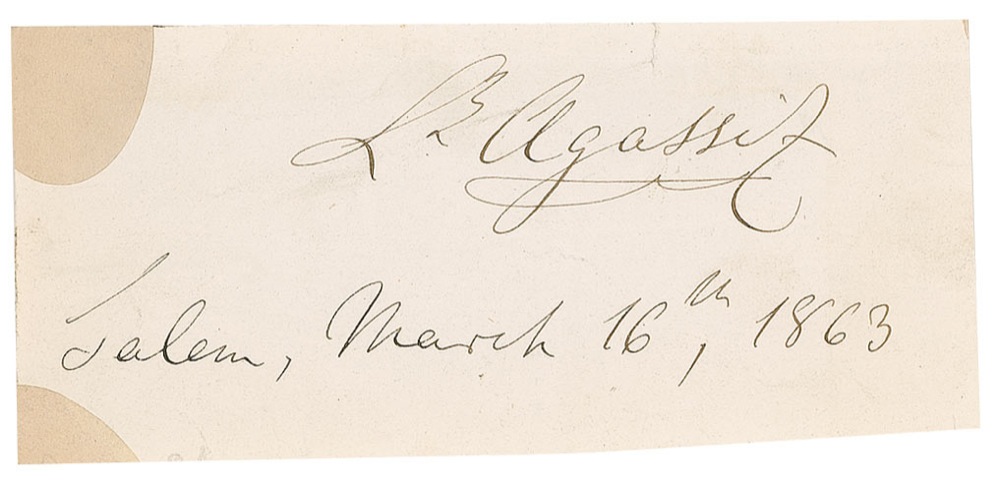 Ls Agassiz
Salem, March 16th, 1863